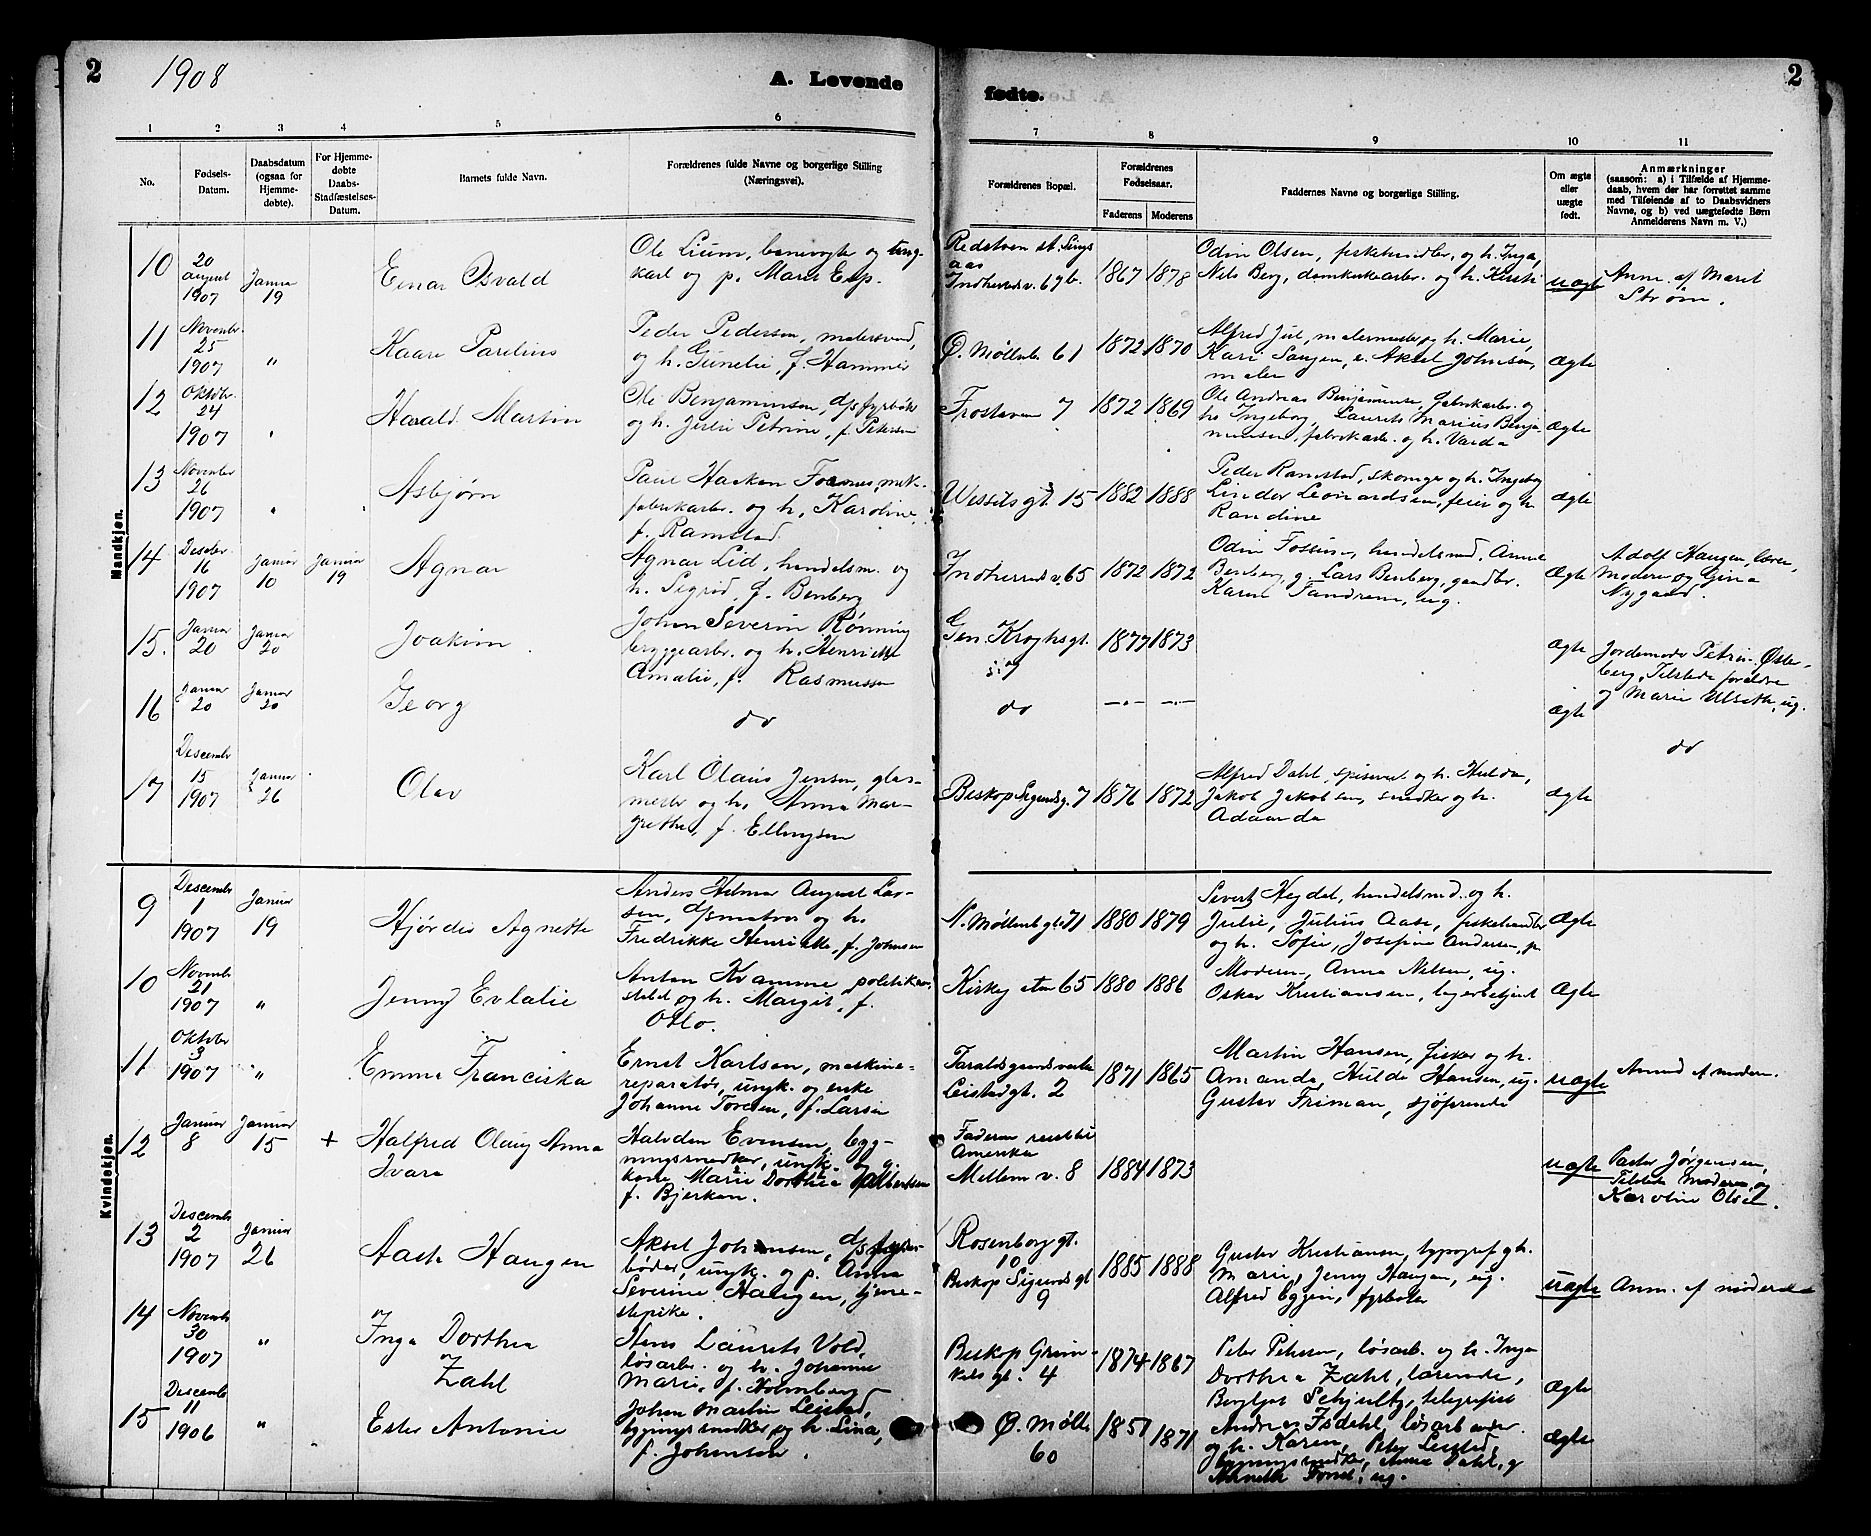 2
1908
A. Levende
fødte.
2
1 2 3 4 5 6 7 8 9 10 11
No.
Fødsels-
Datum.
Daabsdatum
(ogsaa for
Hjemme-
døbte).
For Hjemme-
døbte
Daabs-
Stadfæstelses-
Datum.
Barnets fulde Navn.
Forældrenes fulde Navne og borgerlige Stilling
(Næringsvei).
Forældrenes Bopæl.
Forældrenes
Fødselsaar.
Faderens Moderens
Faddernes Navne og borgerlige Stilling.
Om ægte
eller
uægte
født.
Anmærkninger
(saasom: a) i Tilfælde af Hjemme-
daab, hvem der har forrettet samme
med Tilføiende af to Daabsvidners
Navne, og b) ved uægtefødte Børn
Anmelderens Navn m. V.)
Mandkjøn.
10
20
august
1907
Januar
19
Einar Osvald
karl og p. Maret Esp.
Indherredsv. 67b.
1867 1878
Odin Olsen, fiskehandler, og h. Inga,
Nils Berg, domkirkearb. og h. Kirsti
uægte
Anm. af Maret
Strøm.
11
Novembr.
25
1907
"
Kaare Parelius
Peder Pedersen, malersvend,
og h. Gunelie, f. Hammer
Ø. Møllenb. 61
1872 1870
Alfred Juel, malermester og h. Marie,
maler
ægte
12
Oktobr.
24
1907
"
Harald Martin
Ole Benjaminsen, d/s fyrbøt.
og h. Julie Petrine, f. Petersen
Frostaveien 7
1872 1869
Ole Andreas Benjaminsen, fabrikarb. og
h. Ingeborg, Laurits Marius Benja-
minsen, fabrikarb. og h. Varda
ægte
13
November
26
1907
"
Asbjørn
Paul Haakon Fornes, mek.
fabrikarbr. og h. Karoline,
f. Ramstad
Wessels gt. 15
1882 1888
Peder Ramstad, skomager og h. Ingeborg
Linder Leonardsen, feier og h.
Randine
ægte
14
Desebr.
16
1907
Januar
10
Januar
19
Agnar
Agnar Lid, handelsm. og
h. Sigrid, f. Benberg
Indherredsv. 65
1872 1872
Odin Fossum, handelsmd. Anne
Benberg, g. Lars Benberg, gaardbr.
Karen Tandrem, ug.
ægte
Adolf Haugen, lærer,
Moderen og Gina
Nygaard.
15.
Januar
20
Januar
20
Joakim
Johan Severin Rønning
bryggearbr. og h. Henriette
Amalie, f. Rasmussen
Gen. Kroghsgt.
1877 1873
ægte
Jordemoder Petrine Øste-
berg, Tilstede forældre
og Marie Ulseth, ug.
16
Januar
20
Januar
20
Georg
do
do
—"— —"—
ægte
do
17
Descembr
15
1907
Januar
26
Olav
Karl Olaus Jensen, glas-
mester og h. Anna Mar-
grethe, f. Ellingsen
Biskop Sigurdsg. 7
1876 1872
Alfred Dahl, spisevert og h. Hulda,
Jakob Jakobsen, snedker og h.
ægte
Kvindekjøn.
9
Descembr
1
1907
Januar
19
Hjørdis Agnette
Anders Hilmar August Lar-
sen, d/smatros og h.
Fredrikke Henriette, f. Johnsen
N. Møllenb. gt. 71
1880 1879
Severt Hejdal, handelsmd. og h.
Julie, Julius Aase, fiskehandler
og h. Sofie, Josefine Andersen, p.
Ægte
10
Novembr
21
1907
"
Jenny Evlalie
Anton Kvamme, politikon-
stabel og h. Margit, f.
Otlo.
Kirkegaten 65
1880 1886
Moderen, Anna Nelsen, ug.
Oskar Kristiansen, lagerbetjent
Ægte
11
Oktober
3
1907
"
Emma Franciska
Ernst Karlsen, maskine-
reparatør, ungk. og enke
Johanne Toresen, f. Larsen
Leistadgt. 2
1871 1865
Martin Hansen, fisker og h.
Amanda, Hulda Hansen, ug.
Gustav Friman, sjøfarende
uægte
Anmd af moderen.
12
Januar
8
Januar
15
+
Halfred Olaug Anna
Ivara
Halvdan Evensen, byg-
ningssnedker, ungk. og g.
kone Marie Dorthea Albertsen
f. Bjerkan.
Faderen reist til
Amerika
Mellem v. 8
1884 1873
uægte
Pastor Jørgensen,
Tilstede Moderen, og
Karoline Olsen.
13
Descembr
2
1907
Januar
26
Aasta Haugen
Aksel Johansen, d/s fyr-
bøder, ungk. og p. Anna
Severine Haugen, tjene-
stepike.
Rosenborg gt.
10
Biskop Sigurds gt
9
1885 1888
Gustav Kristiansen, typograf og h.
Marie, Jenny Haugen, ug.
Alfred Eggen, fyrbøter
uægte
Anm. af moderen
14
Novembr
30
1907
"
Inga Dorthea
Zahl
Hans Laurits Vold,
løsarbr. og h. Johanne
Marie, f. Holmberg
Biskop Grim-
kels gt. 4
1874 1867
Peter Petersen, løsarb. og h. Inga
Dorthea Zahl, lærerinde,
Bergljot Schjulby, telegrafist
Ægte
15
Descemb
11
1906
"
Ester Antonie
Johan Martin Leistad,
bygningssnedker, og h. Lina,
f. Johnsen.
Ø. Mølle
60
1851 1871
og h. Karen, Peter Leistad,
bygningssnedker, Anna Dahl, g
Ægte